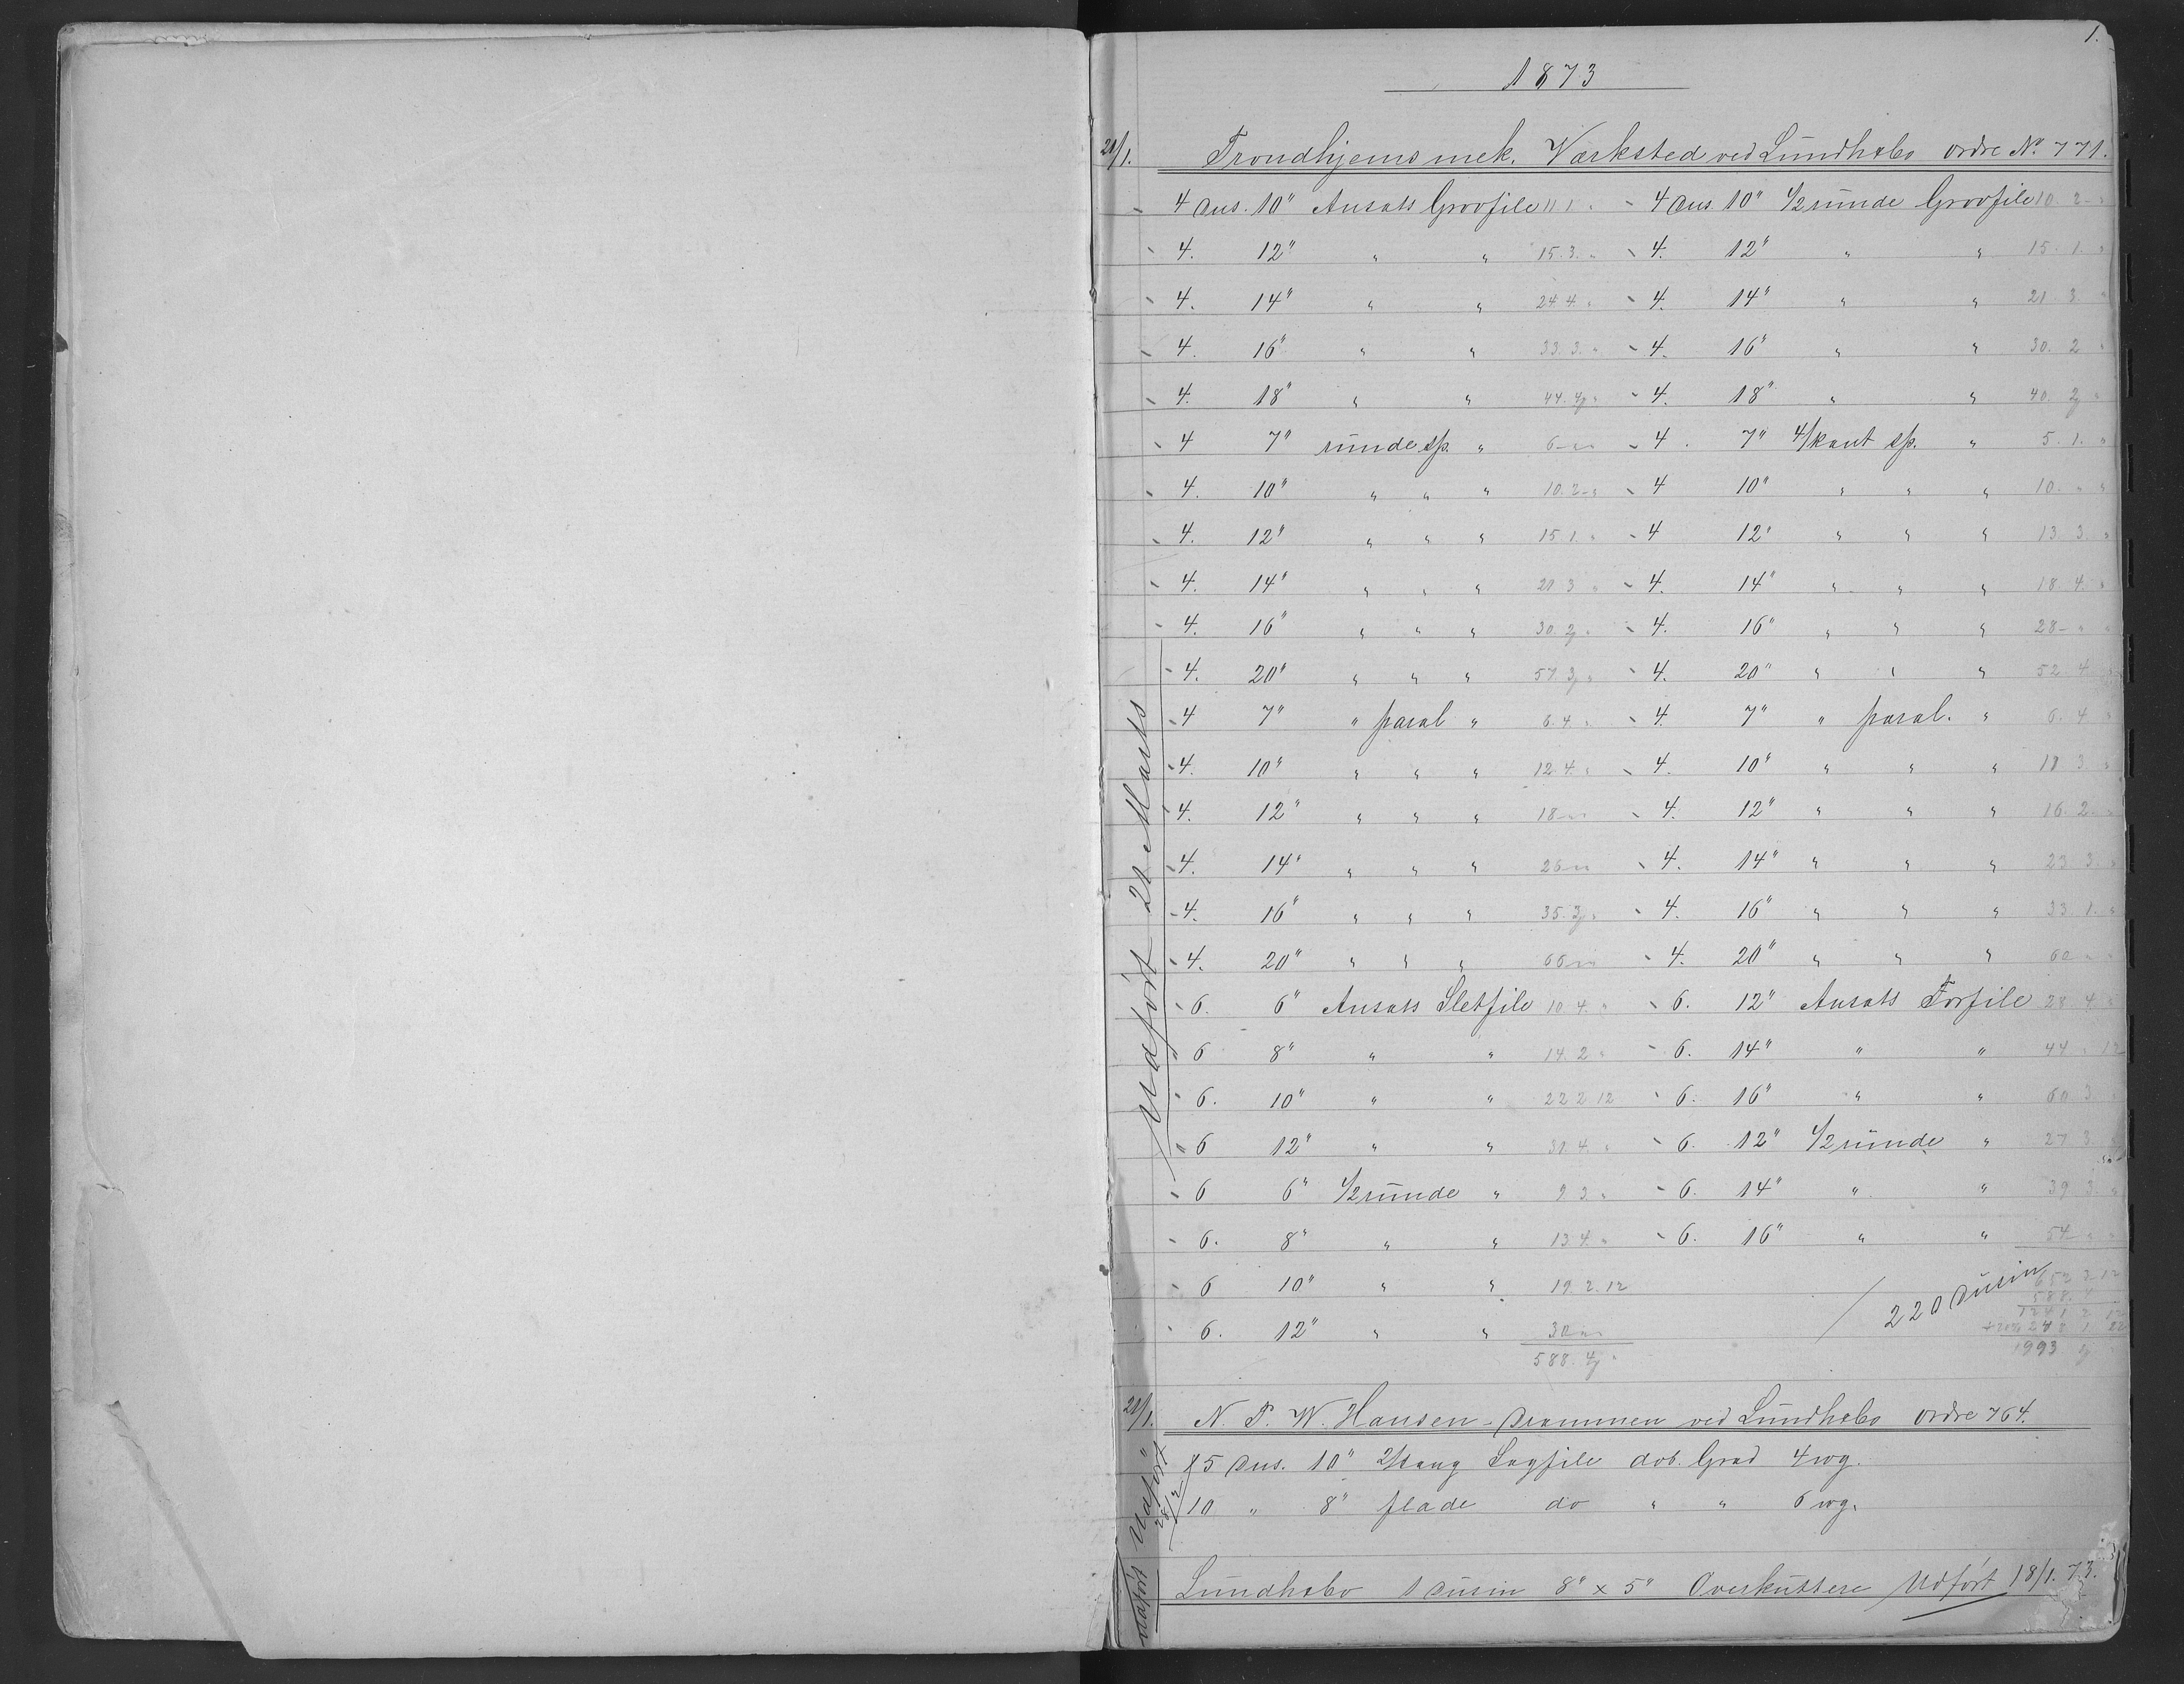 1.
1873
21/1. Trondhjems mek. Værksted ved Lundhebo ordre No. 771.
4 Dus. 10" Ansats Grovfile 11 1 " 4 Dus. 10" 1/2 runde Grovfile 10. 2 "
4. 12" " " 15. 3. " 4. 12" " " 15. 1. "
4. 14" " " 24 4. " 4. 14" " " 21. 3. "
4. 16" " " 33. 3. " 4. 16" " " 30. 2 "
4. 18" " " 44. " 4. 18" " " 40. "
4 7" runde sp. " 6 " " 4. 7" 4/kant sp. " 5. 1. "
4. 10" " " " 10. 2 " 4 10" " " " 10. " "
4. 12" " " " 15 1. " 4 12" " " " 13 3. "
4. 14" " " " 21 3 " 4. 14" " " " 18. 4. "
4. 16" " " " 30. " 4. 16" " " " 28 " "
4. 20" " " " 57. " 4. 20" " " " 52 4 "
4 7" " paral " 6. 4 " 4. 7" " paral. " 6. 4 "
4. 10" " " " 12. 4. " 4. 10" " " " 11 3. "
4. 12" " " " 18 " " 4. 12" " " " 16. 2. "
4. 14" " " " 26 " " 4. 14" " " " 23 3. "
4. 16" " " " 35. " 4. 16" " " " 33 1. "
4. 20" " " " 66 " " 4. 20" " " " 60 " "
6. 6" Ansats Sletfile 10 4. " 6. 12" Ansats Forfile 28 4. "
6 8" " " 14. 2 " 6. 14" " " 44 " 12
6. 10" " " 22 2 12 6. 16" " " 60 3
6 12" " " 31 4. " 6. 12" 1/2 runde " 27 3
6 6" 1/2 runde " 9 3. " 6. 14" " " 39 3. "
6. 8" " " 13 4. " 6. 16" " " 54 " "
6 10" " " 19. 2. 12
6. 12" " " 30 " "
588. 4 "
220 Dusin
652 3 12
588. 4
1241 2 12
+ 20% 248 1
Udført 21 Marts
21/1. N. P. W. Hansen - Drammen ved Lundhebo ordre 764.
15 Dus. 10" Sagfile dob. Grad 4 wg.
10 " 8" flade do " " 6 wg.
Udført
Lundhebo 1 Dusin 8" x 5" Overkuttere Udført 18/1. 73.
Udført